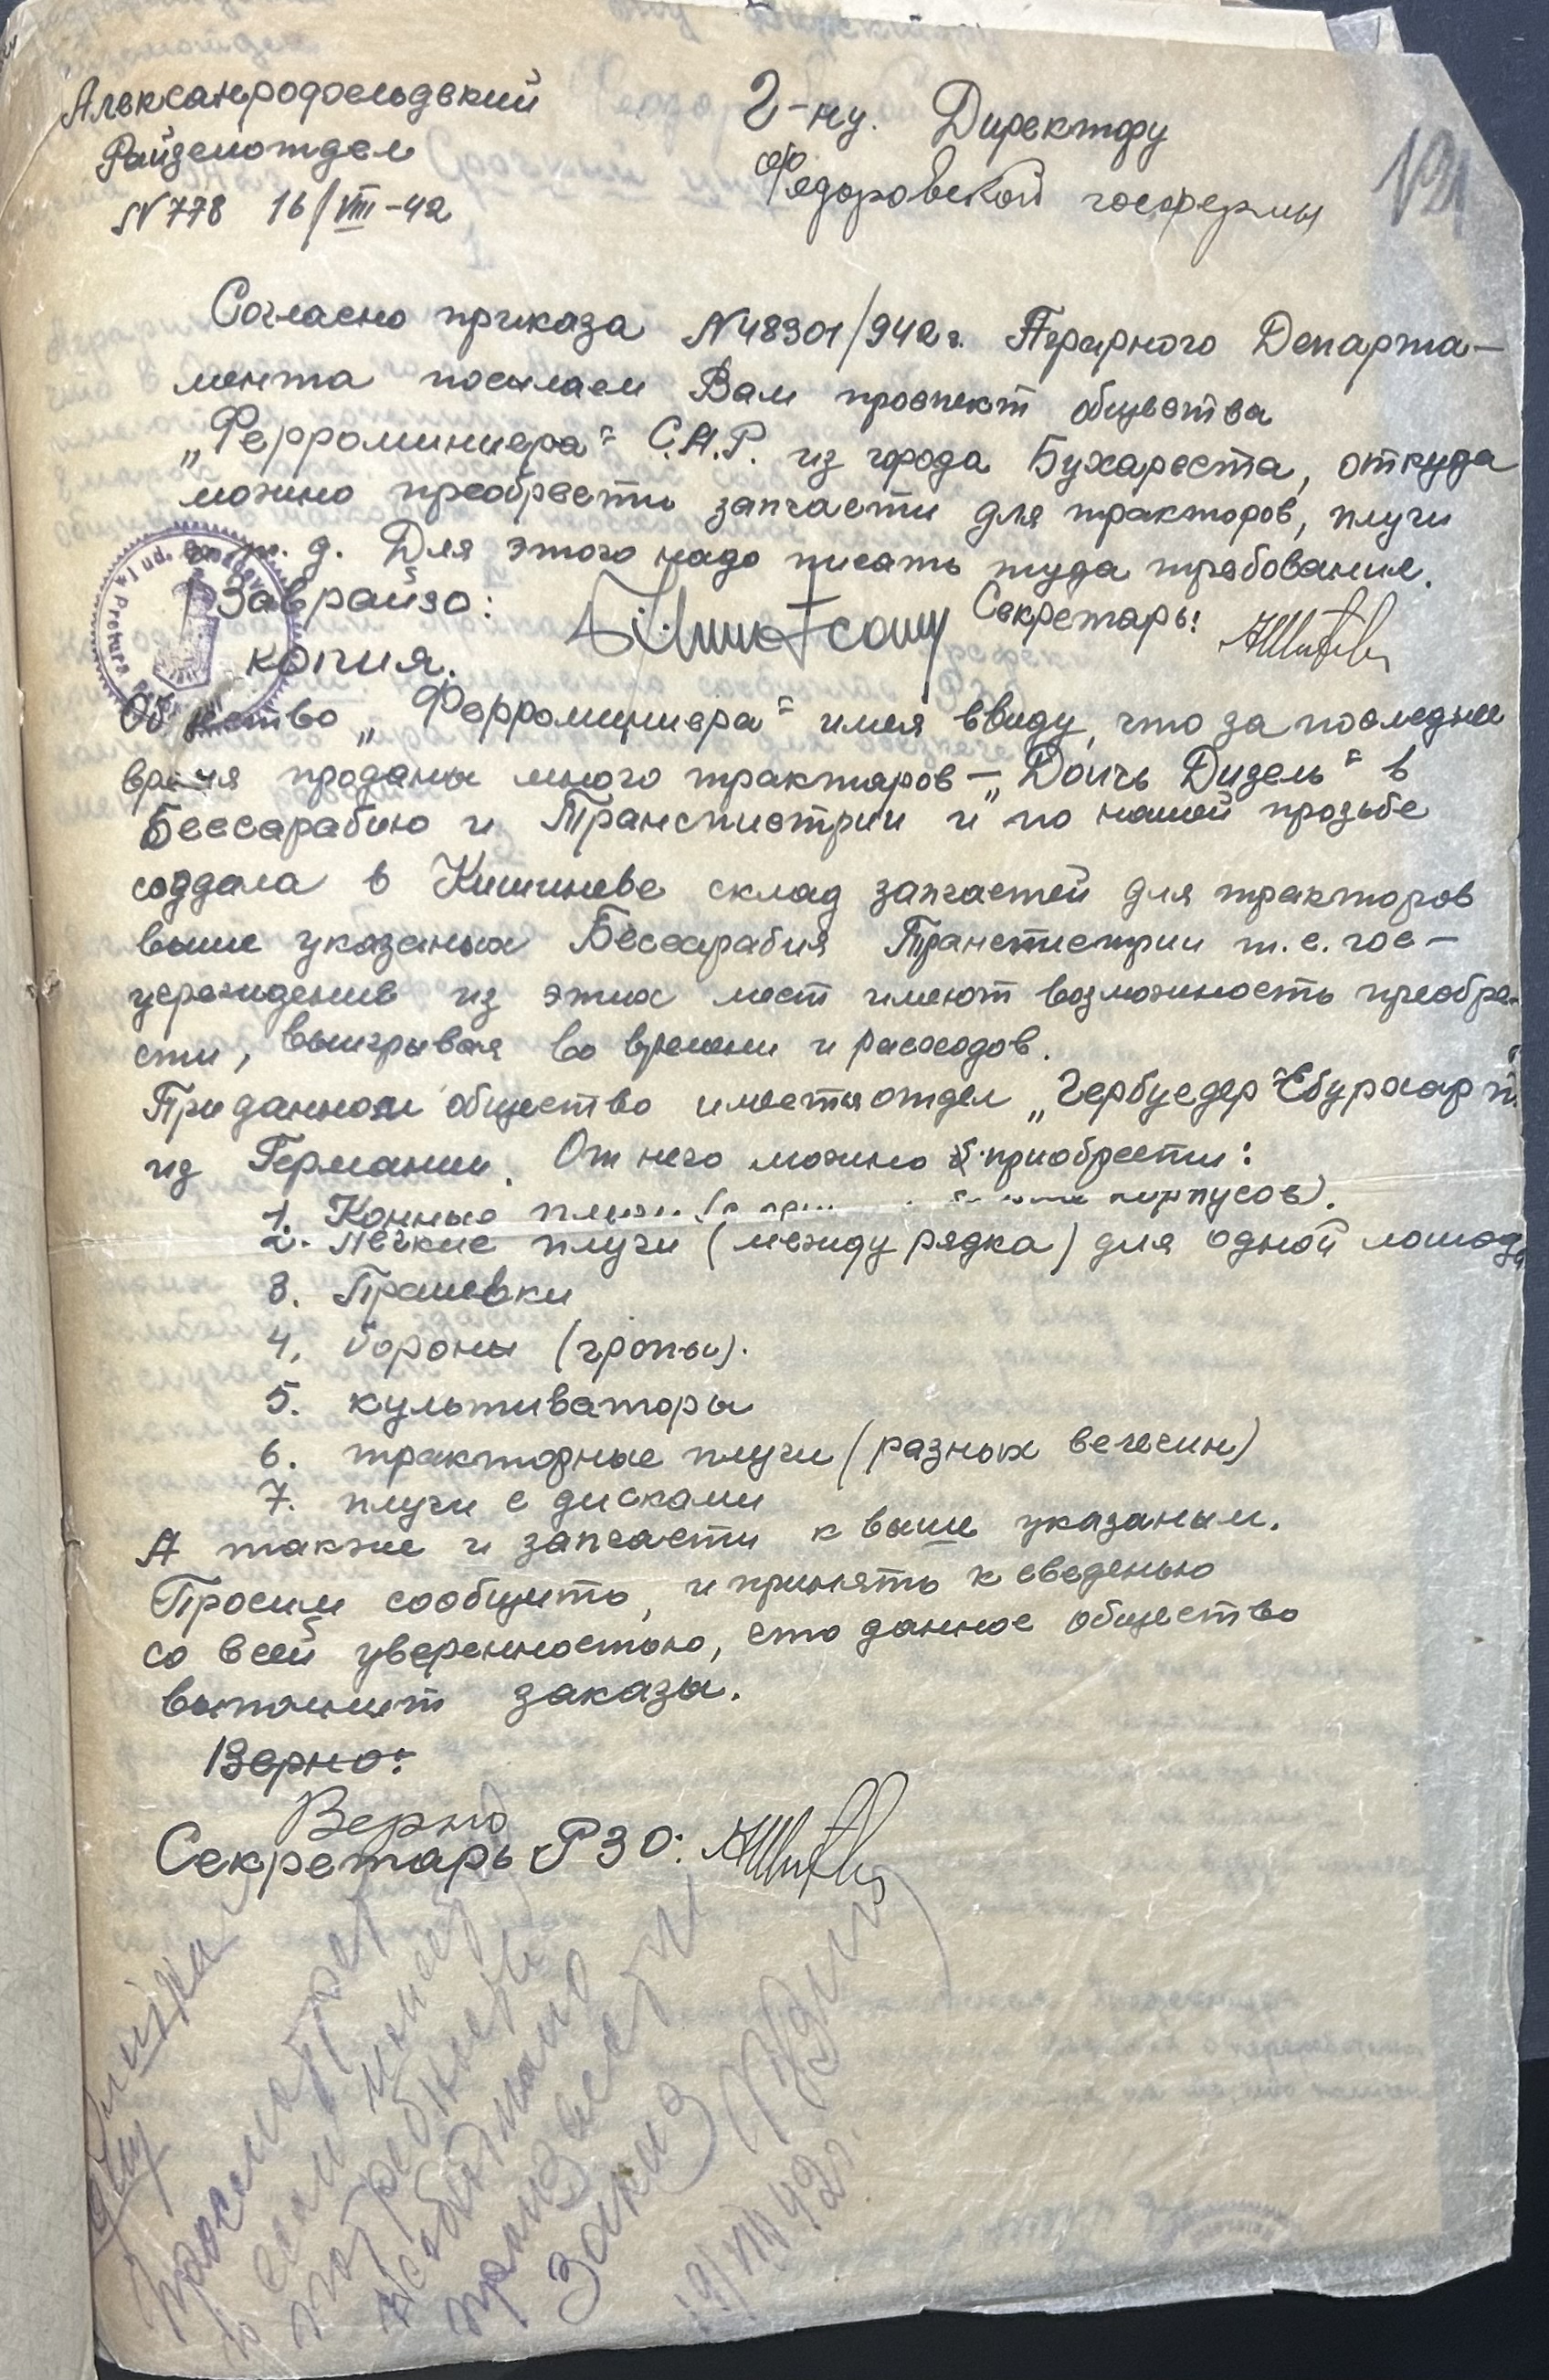 Александрофельдский
Райземотдел
N 778 16/VIII-42
Г-ну. Директору
Федоровской госфермы
121
Согласно приказа N48301/942г. Аграрного Департа-
мента посылаем Вам проспект общества
„Ферроминиера" С.А.Р. из города Бухареста, откуда
можно преобрести запчасти для тракторов, плуги
и т. д. Для этого надо писать туда требования.
Заврайзо: Секретарь:
копия.
Об ество „Ферроминиера" имея ввиду, что за последнее
время проданы много тракторов – „Доичь Дизель" в
Бессарабию и Транснистрии и по нашей прозьбе
создала в Кишиневе склад запчастей для тракторов
выше указаных Бессарабия Транснистрии т.е. гос-
учреждения из этих мест имеют возможность преобре-
сти, выигрывая во времени и расходов.
При данном общество имеется отдел „Гербуедер Ебурхарт"
из Германии. От него можно приобрести:
1. Конные плуги корпусов).
2. Легкие плуги (между рядка) для одной лошади
3. Прашевки
4. бороны (гропы).
5. культиваторы
6. тракторные плуги (разных величин)
7. плуги с дисками
А также и запчасти к выше указаным.
Просим сообщить, и принять к сведенью
со всей уверенностью, что данное общество
выполнит заказы.
Верно:
Верно
Секретарь РЗО:
просмотрет
и если имеет
потребность
необходимо
произвести
Заказ
19/VIII 42г.